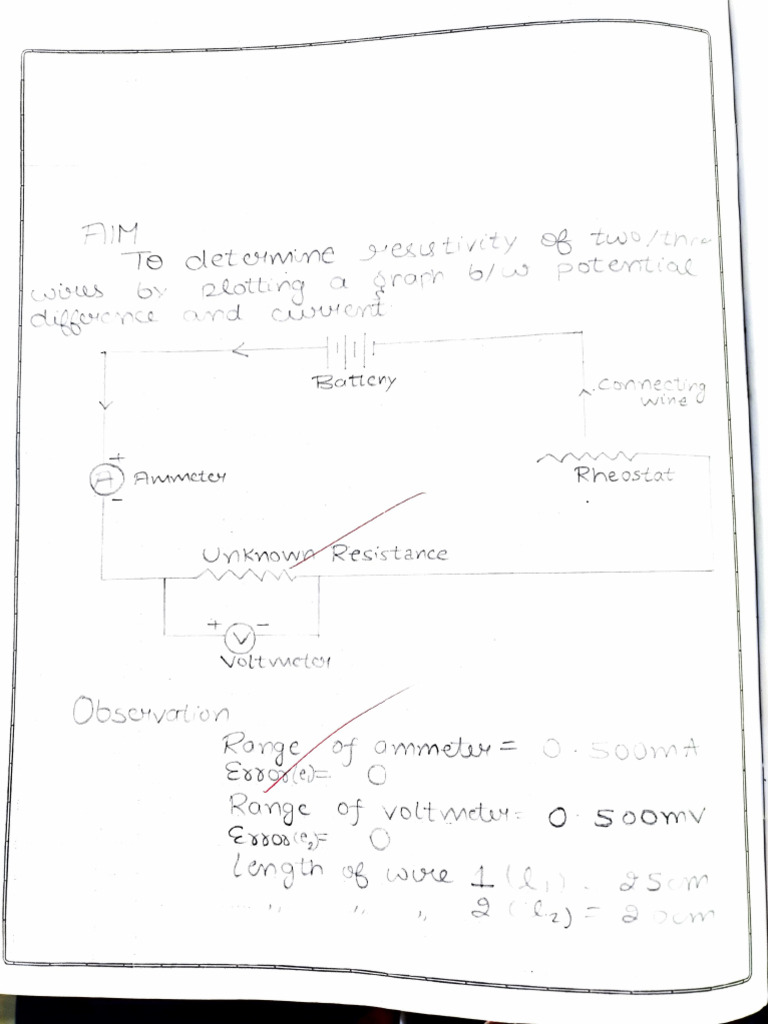 AIM
To determine resistivity of two/thre
wires by plotting a graph b/w potential
difference and current
Battery
connecting
wire
+
A Ammeter
-
Rheostat
Unknown Resistance
+ V -
Voltmeter
Observation
Range of ammeter = 0.500mA
Error(e₁)= 0
Range of voltmeter= 0.500mV
Error(e₂)= 0
Length of wire 1 (l₁). 25cm
,, ,, ,, 2 (l₂) = 20cm